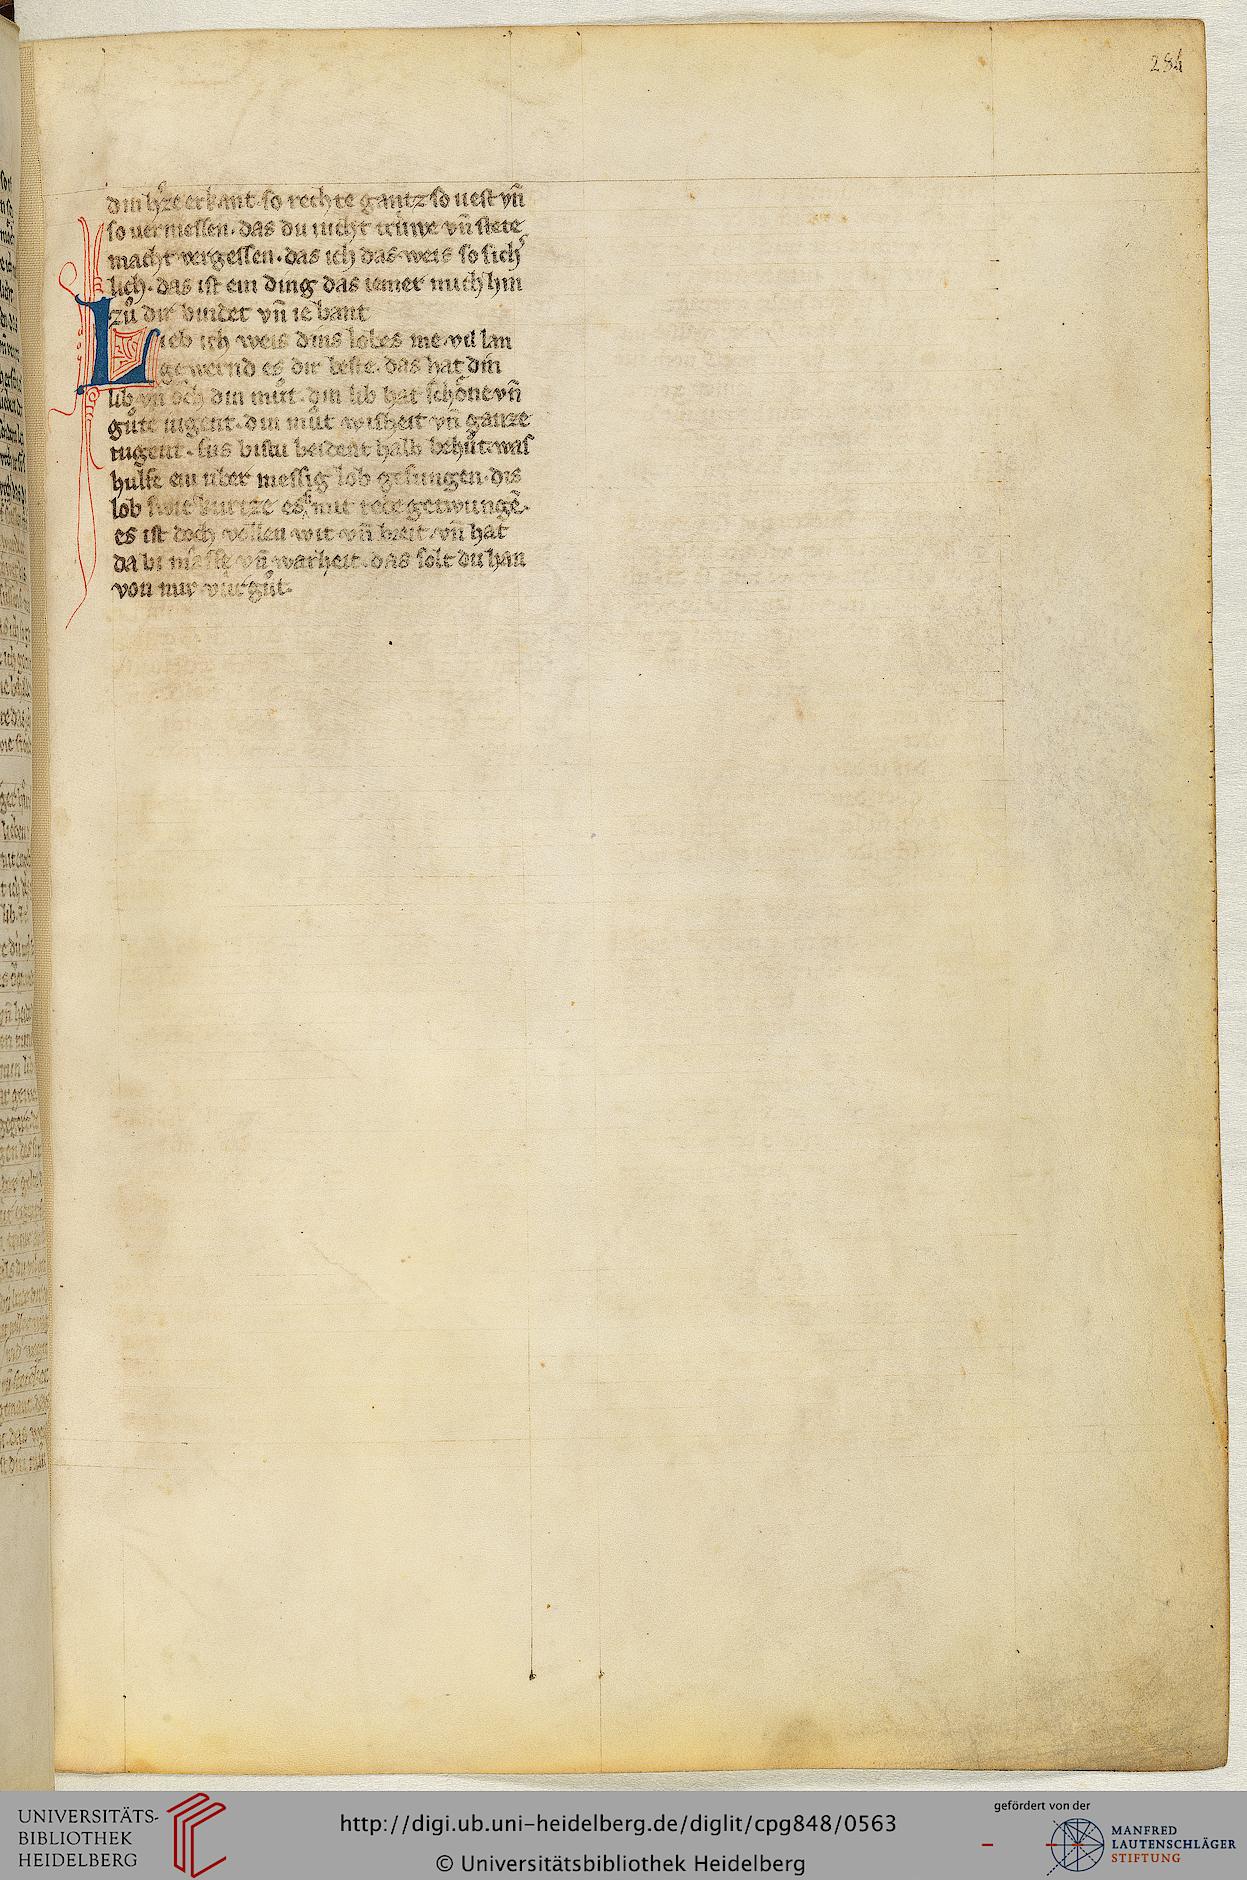 284
din hˢze erkant · so rechte gantz so uest vn̄
so uermessen · das du nicht trúwe vn̄ stete
macht vergessen · das ich das weis so sichˢ
lich · das ist ein ding das iemer mich hin
zuͦ dir bindet vn̄ ie bant
Lieb ich weis dins lobes me · vil lan
ge wernd es dir beste · das hat din
lib vn̄ och din muͦt · din lib hat schone vn̄
guͤte iugent · din muͦt wisheit vn̄ ganze
tugent · sus bistu beident halb behuͦt · was
hulfe ein uber messig lob gesungen · dis
lob swie kurtze es mit rede getwungē ·
es ist doch vollen wit vn̄ breit · vn̄ hat
da bi masse vn̄ warheit · das solt du han
von mir vur guͦt ·
UNIVERSITÄTS-
BIBLIOTHEK
HEIDELBERG
http://digi.ub.uni-heidelberg.de/diglit/cpg848/0563
© Universitätsbibliothek Heidelberg
gefördert von der
MANFRED
LAUTENSCHLÄGER
STIFTUNG